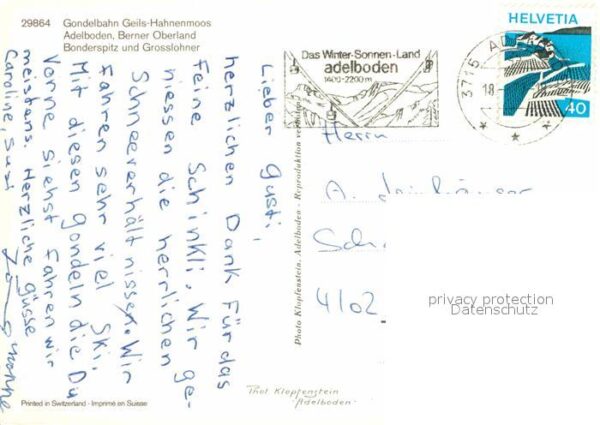 29864 Gondelbahn Geils-Hahnenmoos
Adelboden, Berner Oberland
Bonderspitz und Grosslohner
Lieber Gusti,
herzlichen Dank für das
feine Schinkli. Wir ge-
niessen die herrlichen
Schneeverhältnisse. Wir
fahren sehr viel Ski.
Mit diesen Gondeln die Du
vorne siehst fahren wir
meistens. Herzliche güsse
Caroline, Susi
Printed in Switzerland - Imprimé en Suisse
Photo Klopfenstein, Adelboden - Reproduktion verboten
Phot Klopfenstein
Adelboden
Das Winter-Sonnen-Land
adelboden
1400-2200m
3715 AD
18
HELVETIA
40
Herrn
A.
Sch
4102
privacy protection
Datenschutz